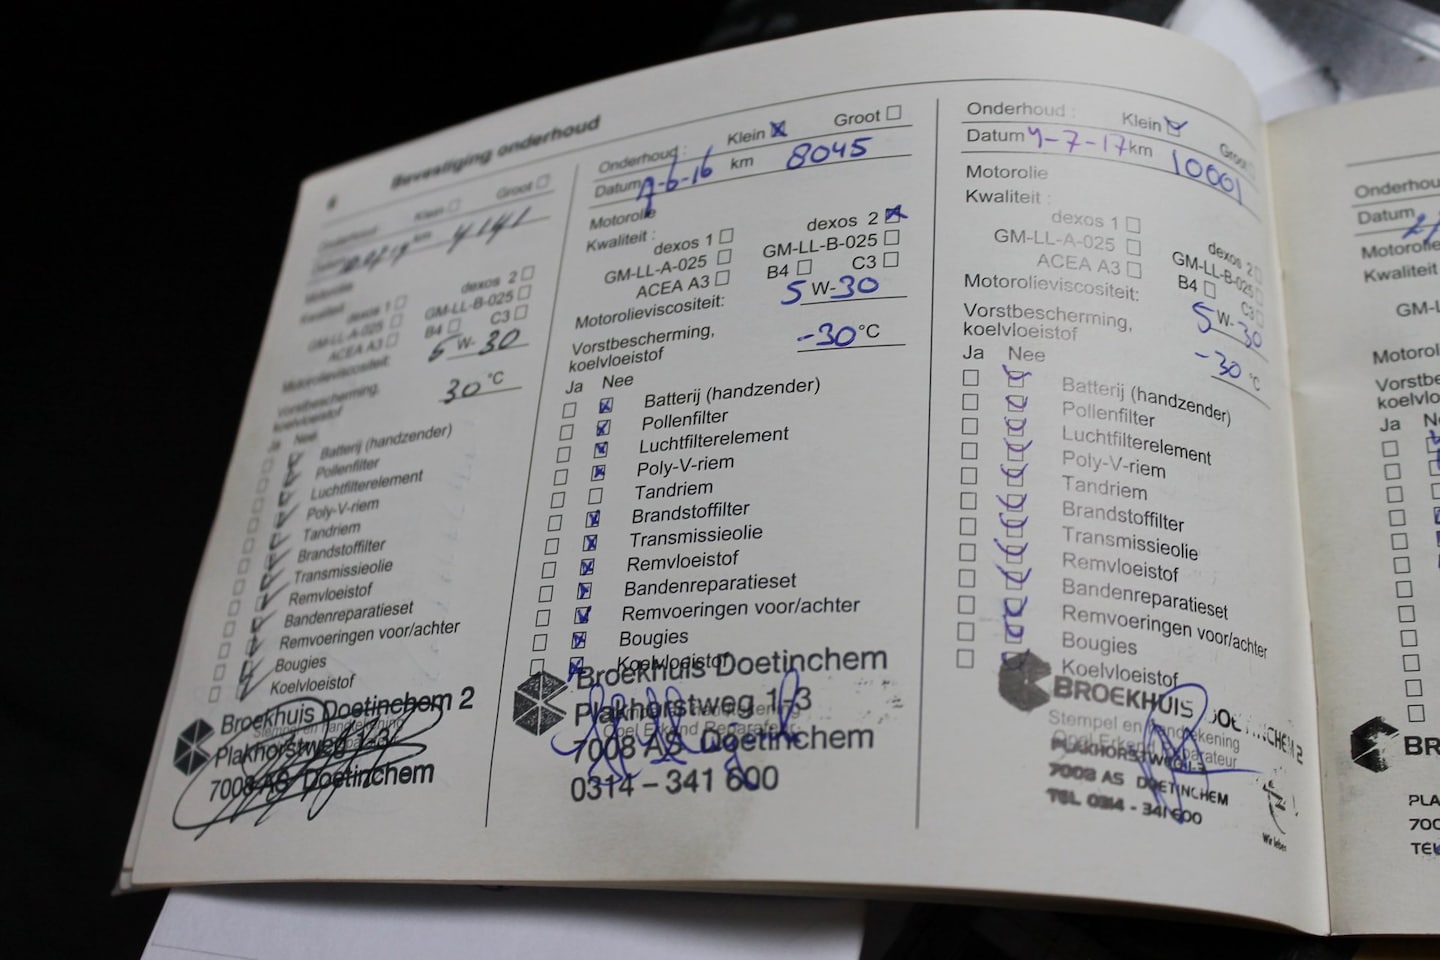 6 Bevestiging onderhoud
Onderhoud : Klein Groot
km 4141
Motorolie
Kwaliteit : dexos 2
dexos 1 GM-LL-B-025
GM-LL-A-025 B4 C3
ACEA A3
Motorolieviscositeit: 5 W- 30
Vorstbescherming,
koelvloeistof 30 °C
Ja Nee
Batterij (handzender)
Pollenfilter
Luchtfilterelement
Poly-V-riem
Tandriem
Brandstoffilter
Transmissieolie
Remvloeistof
Bandenreparatieset
Remvoeringen voor/achter
Bougies
Koelvloeistof
Broekhuis Doetinchem 2
Stempel en handtekening
Plakhorstweg 1-3
7008 AS Doetinchem
Onderhoud : Klein Groot
Datum 7-6-16 km 8045
Motorolie
Kwaliteit : dexos 2
dexos 1 GM-LL-B-025
GM-LL-A-025 B4 C3
ACEA A3
Motorolieviscositeit: 5 W- 30
Vorstbescherming,
koelvloeistof -30 °C
Ja Nee
Batterij (handzender)
Pollenfilter
Luchtfilterelement
Poly-V-riem
Tandriem
Brandstoffilter
Transmissieolie
Remvloeistof
Bandenreparatieset
Remvoeringen voor/achter
Bougies
Koelvloeistof
Broekhuis Doetinchem
Plakhorstweg 1-3
Opel Erkend Reparateur
7008 AS Doetinchem
0314 – 341 600
Onderhoud : Klein Groot
Datum 4-7-17 km 10001
Motorolie
Kwaliteit :
dexos 1 dexos 2
GM-LL-A-025 GM-LL-B-025
ACEA A3 B4 C3
Motorolieviscositeit: 5 W- 30
Vorstbescherming,
koelvloeistof -30 °C
Ja Nee
Batterij (handzender)
Pollenfilter
Luchtfilterelement
Poly-V-riem
Tandriem
Brandstoffilter
Transmissieolie
Remvloeistof
Bandenreparatieset
Remvoeringen voor/achter
Bougies
Koelvloeistof
BROEKHUIS DOETINCHEM 2
Stempel en handtekening
Opel Erkend Reparateur
PLAKHORSTWEG 1-3
7008 AS DOETINCHEM
TEL. 0314 - 341600
Wir leben
Onderhou
Datum
Motorolie
Kwaliteit
GM-L
Motorol
Vorstbe
koelvlo
Ja Ne
BR
PLA
700
TEL